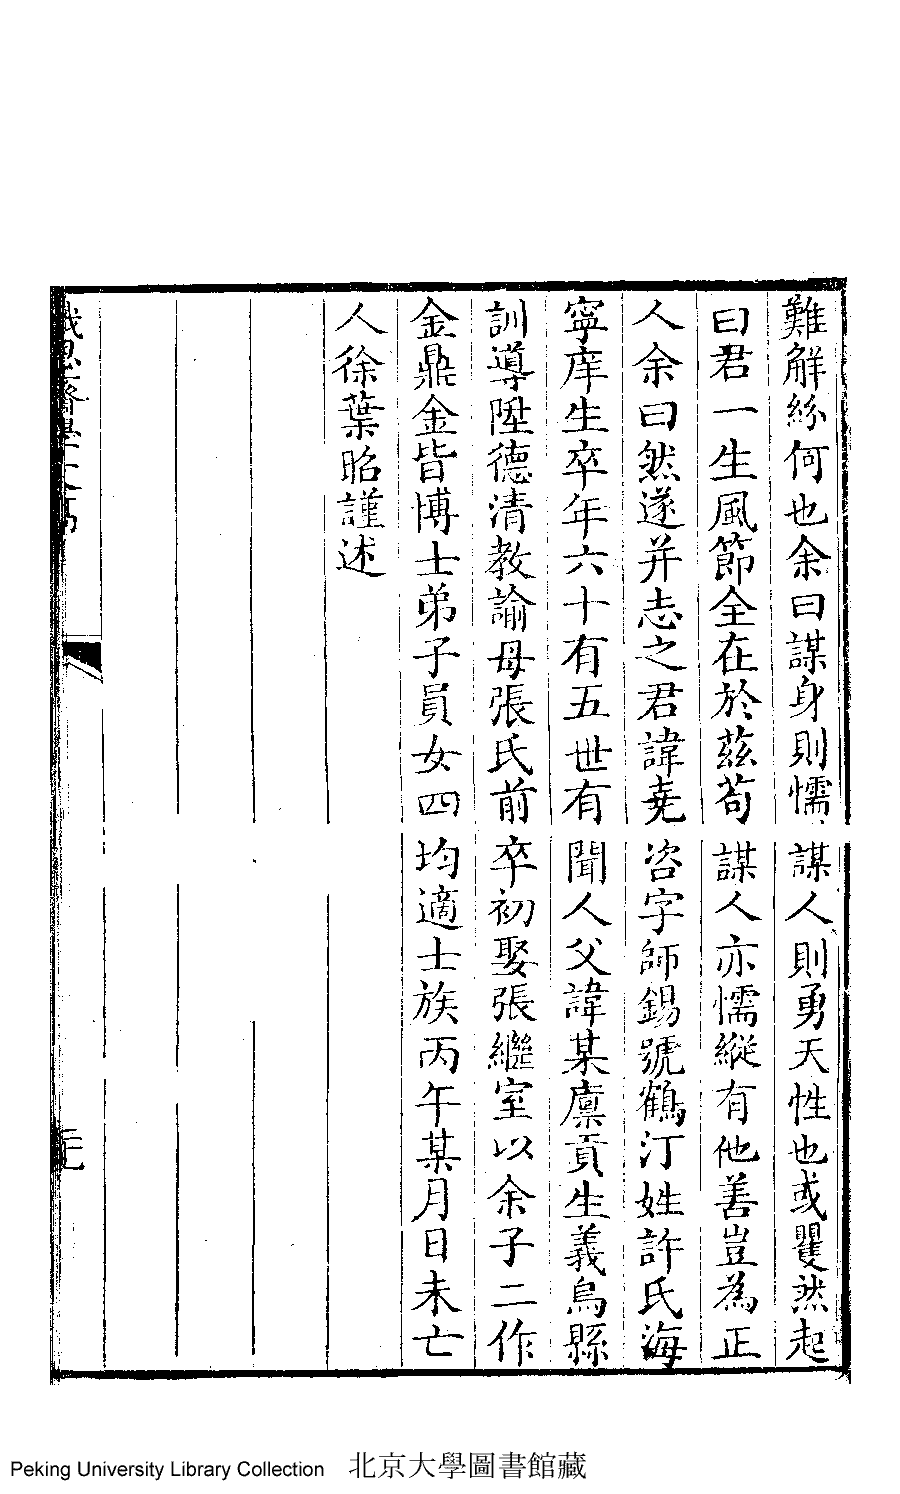 難解紛何也余曰謀身則懦謀人則勇天性也或瞿然起
曰君一生風節全在於茲苟謀人亦懦縱有他善豈為正
人余曰然遂并志之君諱堯咨字師錫號鶴汀姓許氏海
寧庠生卒年六十有五世有聞人父諱某廩貢生義烏縣
訓導陞德清教諭母張氏前卒初娶張繼室以余子二作
金鼎金皆博士弟子員女四均適士族丙午某月日未亡
人徐葉昭謹述
Peking University Library Collection 北京大學圖書館藏